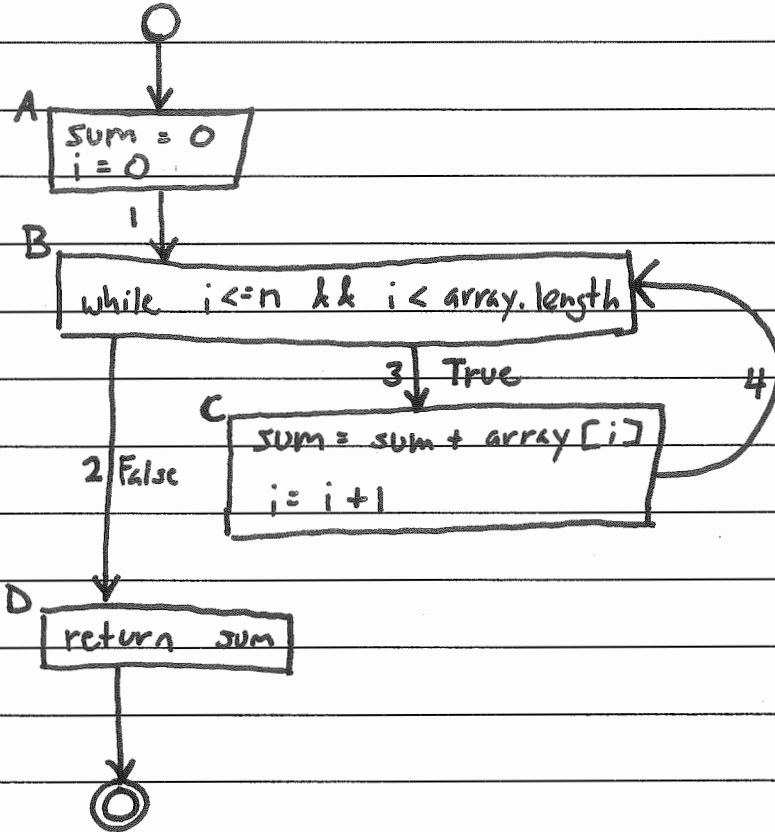 A
sum = 0
i = 0
1
B
while i <= n && i < array.length
3 True
4
C
sum = sum + array [i]
i = i + 1
2 False
D
return sum